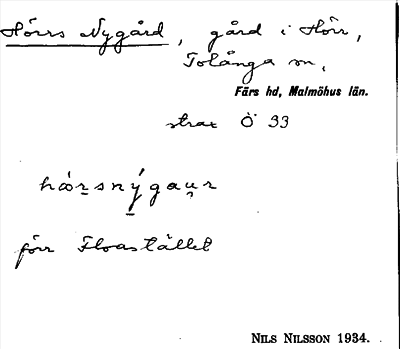 Hörrs Nygård, gård i Hörr,
Tolånga sn,
Färs hd, Malmöhus län.
strax Ö 33
hǫ́rsnýgaur
förr Floastället
NILS NILSSON 1934.